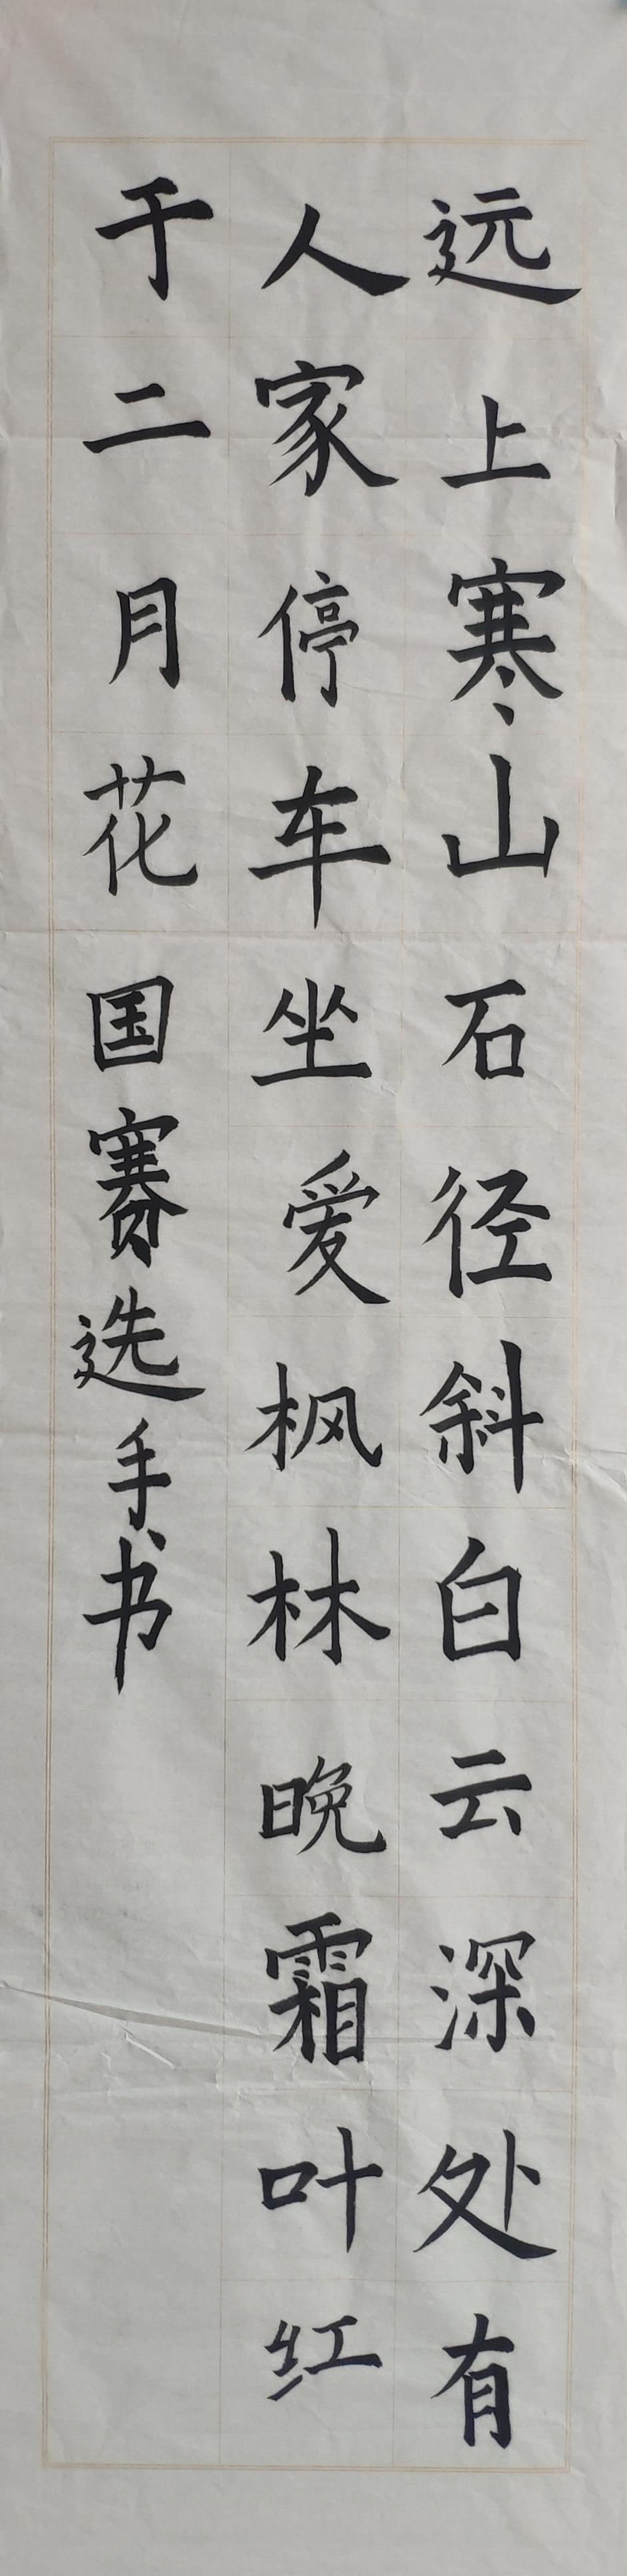 远上寒山石径斜白云深处有
人家停车坐爱枫林晚霜叶红
于二月花国赛选手书